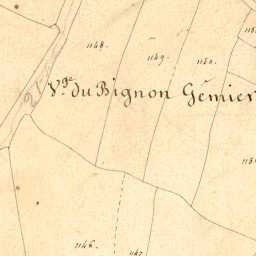 1148.
1149.
1150.
V.ge du Bignon Gémier
1146.
1147